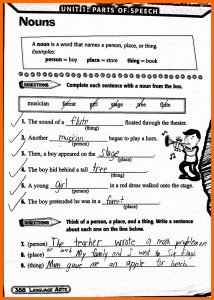 UNIT 1: PARTS OF SPEECH
Nouns
A noun is a word that names a person, place, or thing.
Examples:
person = boy place = store thing = book
DIRECTIONS Complete each sentence with a noun from the box.
musician forest girl stage tree flute
1. The sound of a flute floated through the theater.
(thing)
2. Another musician began to play a horn.
(person)
3. Then, a boy appeared on the stage.
(place)
4. The boy hid behind a tall tree.
(thing)
5. A young girl in a red dress walked onto the stage.
(person)
6. The boy pretended he was in a forest.
(place)
DIRECTIONS Think of a person, a place, and a thing. Write a sentence
about each one on the line below.
7. (person) The teacher wrote a math problem on
8. (place) My family and I went to
9. (thing) Mom gave me an apple for lunch
388 LANGUAGE ARTS